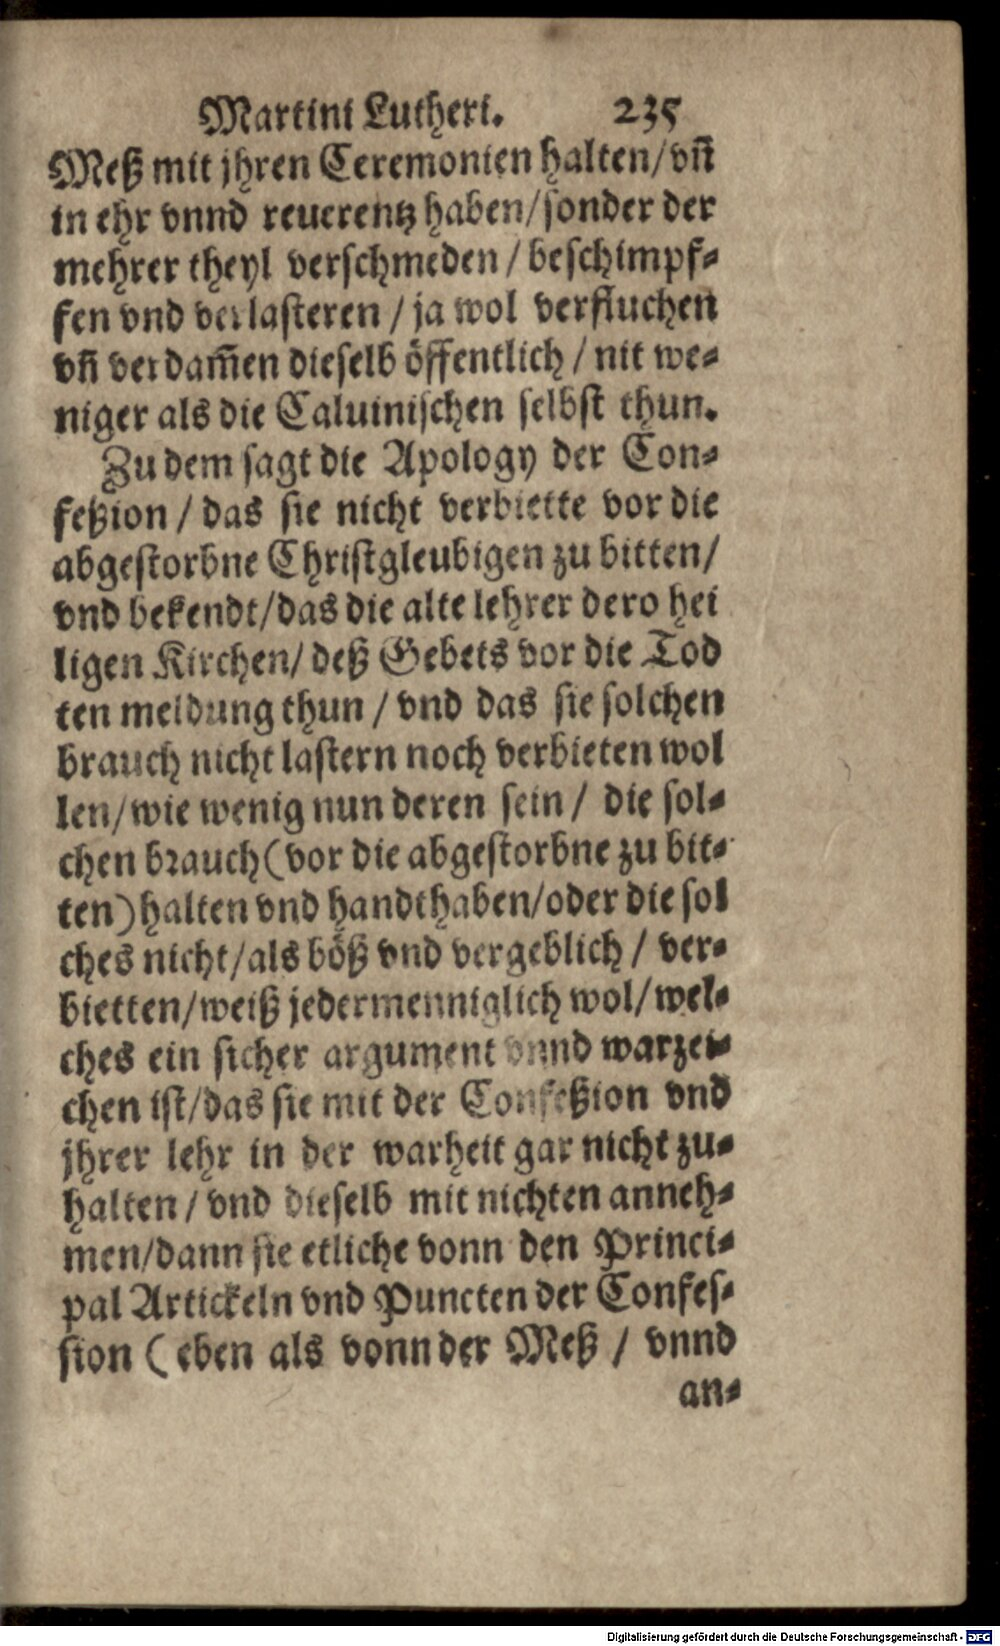 Martini Lutheri. 235
Meß mit jhren Ceremonien halten/vñ
in ehr vnnd reuerentz haben/sonder der
mehrer theyl verschmeden / beschimpf-
fen vnd verlasteren / ja wol verfluchen
vñ verdam̄en dieselb öffentlich / nit we-
niger als die Caluinischen selbst thun.
Zu dem sagt die Apology der Con-
feßion / das sie nicht verbiette vor die
abgestorbne Christgleubigen zu bitten/
vnd bekendt/das die alte lehrer dero hei
ligen Kirchen/ deß Gebets vor die Tod
ten meldung thun / vnd das sie solchen
brauch nicht lastern noch verbieten wol
len/wie wenig nun deren sein / die sol-
chen brauch (vor die abgestorbne zu bit-
ten) halten vnd handthaben/oder die sol
ches nicht/als böß vnd vergeblich / ver-
bietten/weiß jedermenniglich wol/wel-
ches ein sicher argument vnnd warzei-
chen ist/das sie mit der Confeßion vnd
jhrer lehr in der warheit gar nicht zu-
halten / vnd dieselb mit nichten anneh-
men/dann sie etliche vonn den Princi-
pal Artickeln vnd Puncten der Confes-
sion ( eben als vonn der Meß / vnnd
an-
Digitalisierung gefördert durch die Deutsche Forschungsgemeinschaft - DFG